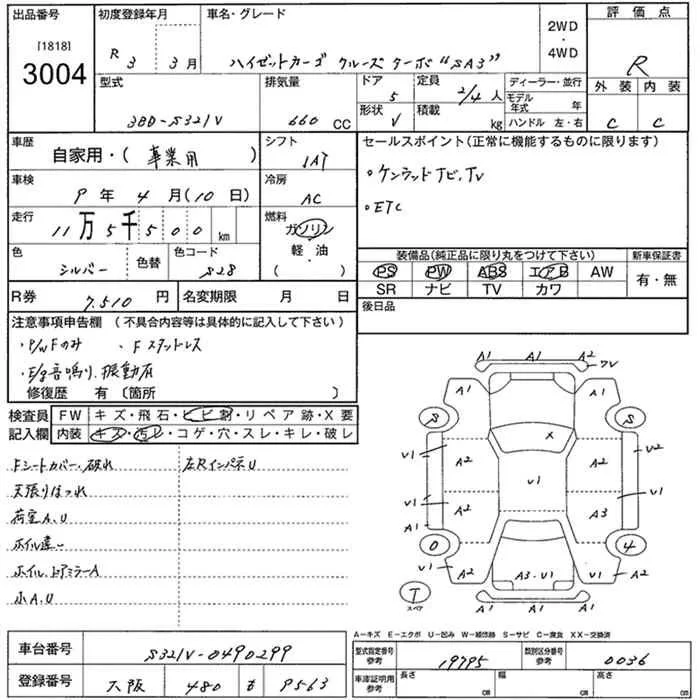 出品番号 初度登録年月 車名・グレード 2WD・4WD 評価点
[1818] 3004 R3 3月 ハイゼットカーゴ クルーズターボ "SA3" R
型式 排気量 ドア 定員 ディーラー・並行 外装 内装
3BD-S321V 660 CC 5 2/4人 モデル年式 年 C C
形状 V 積載 kg ハンドル 左・右
車歴 自家用・(事業用) シフト IAT セールスポイント(正常に機能するものに限ります)
車検 9年4月(10日) 冷房 AC ・ケンウッドナビ,TV
走行 11万5千500km 燃料 ガソリン 軽・油 ( ・ ) ・ETC
色 シルバー 色替 色コード S28 装備品(純正品に限り丸をつけて下さい) 新車保証書
PS PW ABS エアB AW 有・無
SR ナビ TV カワ
R券 7,510円 名変期限 月 日 後日品
注意事項申告欄 (不具合内容等は具体的に記入して下さい)
・P/WFのみ ・Fスタットレス
・E/g音鳴り.振動有
修復歴 有 〔箇所 〕
検査員記入欄 FW キズ・飛石・ヒビ割・リペア跡・X要
内装 キズ・汚レ・コゲ・穴・スレ・キレ・破レ
Fシートカバー・破れ 左RインパネU
天張りほつれ
荷室A,U
ホイル違い
ホイル.ドアミラーA
小A.U
A1 A1 A2 ワV
A1 A2
S S
X
V1 A2 A2 U2
V1
V1 A2 A3 V1
A1
0 4
V1 A2 A3・V1 V1 A2
T スペア
A1 A1 A2
A―キズ E―エクボ U―凹み W―補修跡 S―サビ C―腐食 XX―交換済
車台番号 S321V-0490299 型式指定番号 参考 19795 類別区分番号 参考 0036
登録番号 大阪 480 を 9563 車庫証明用 参考 長さ cm 幅 cm 高さ cm